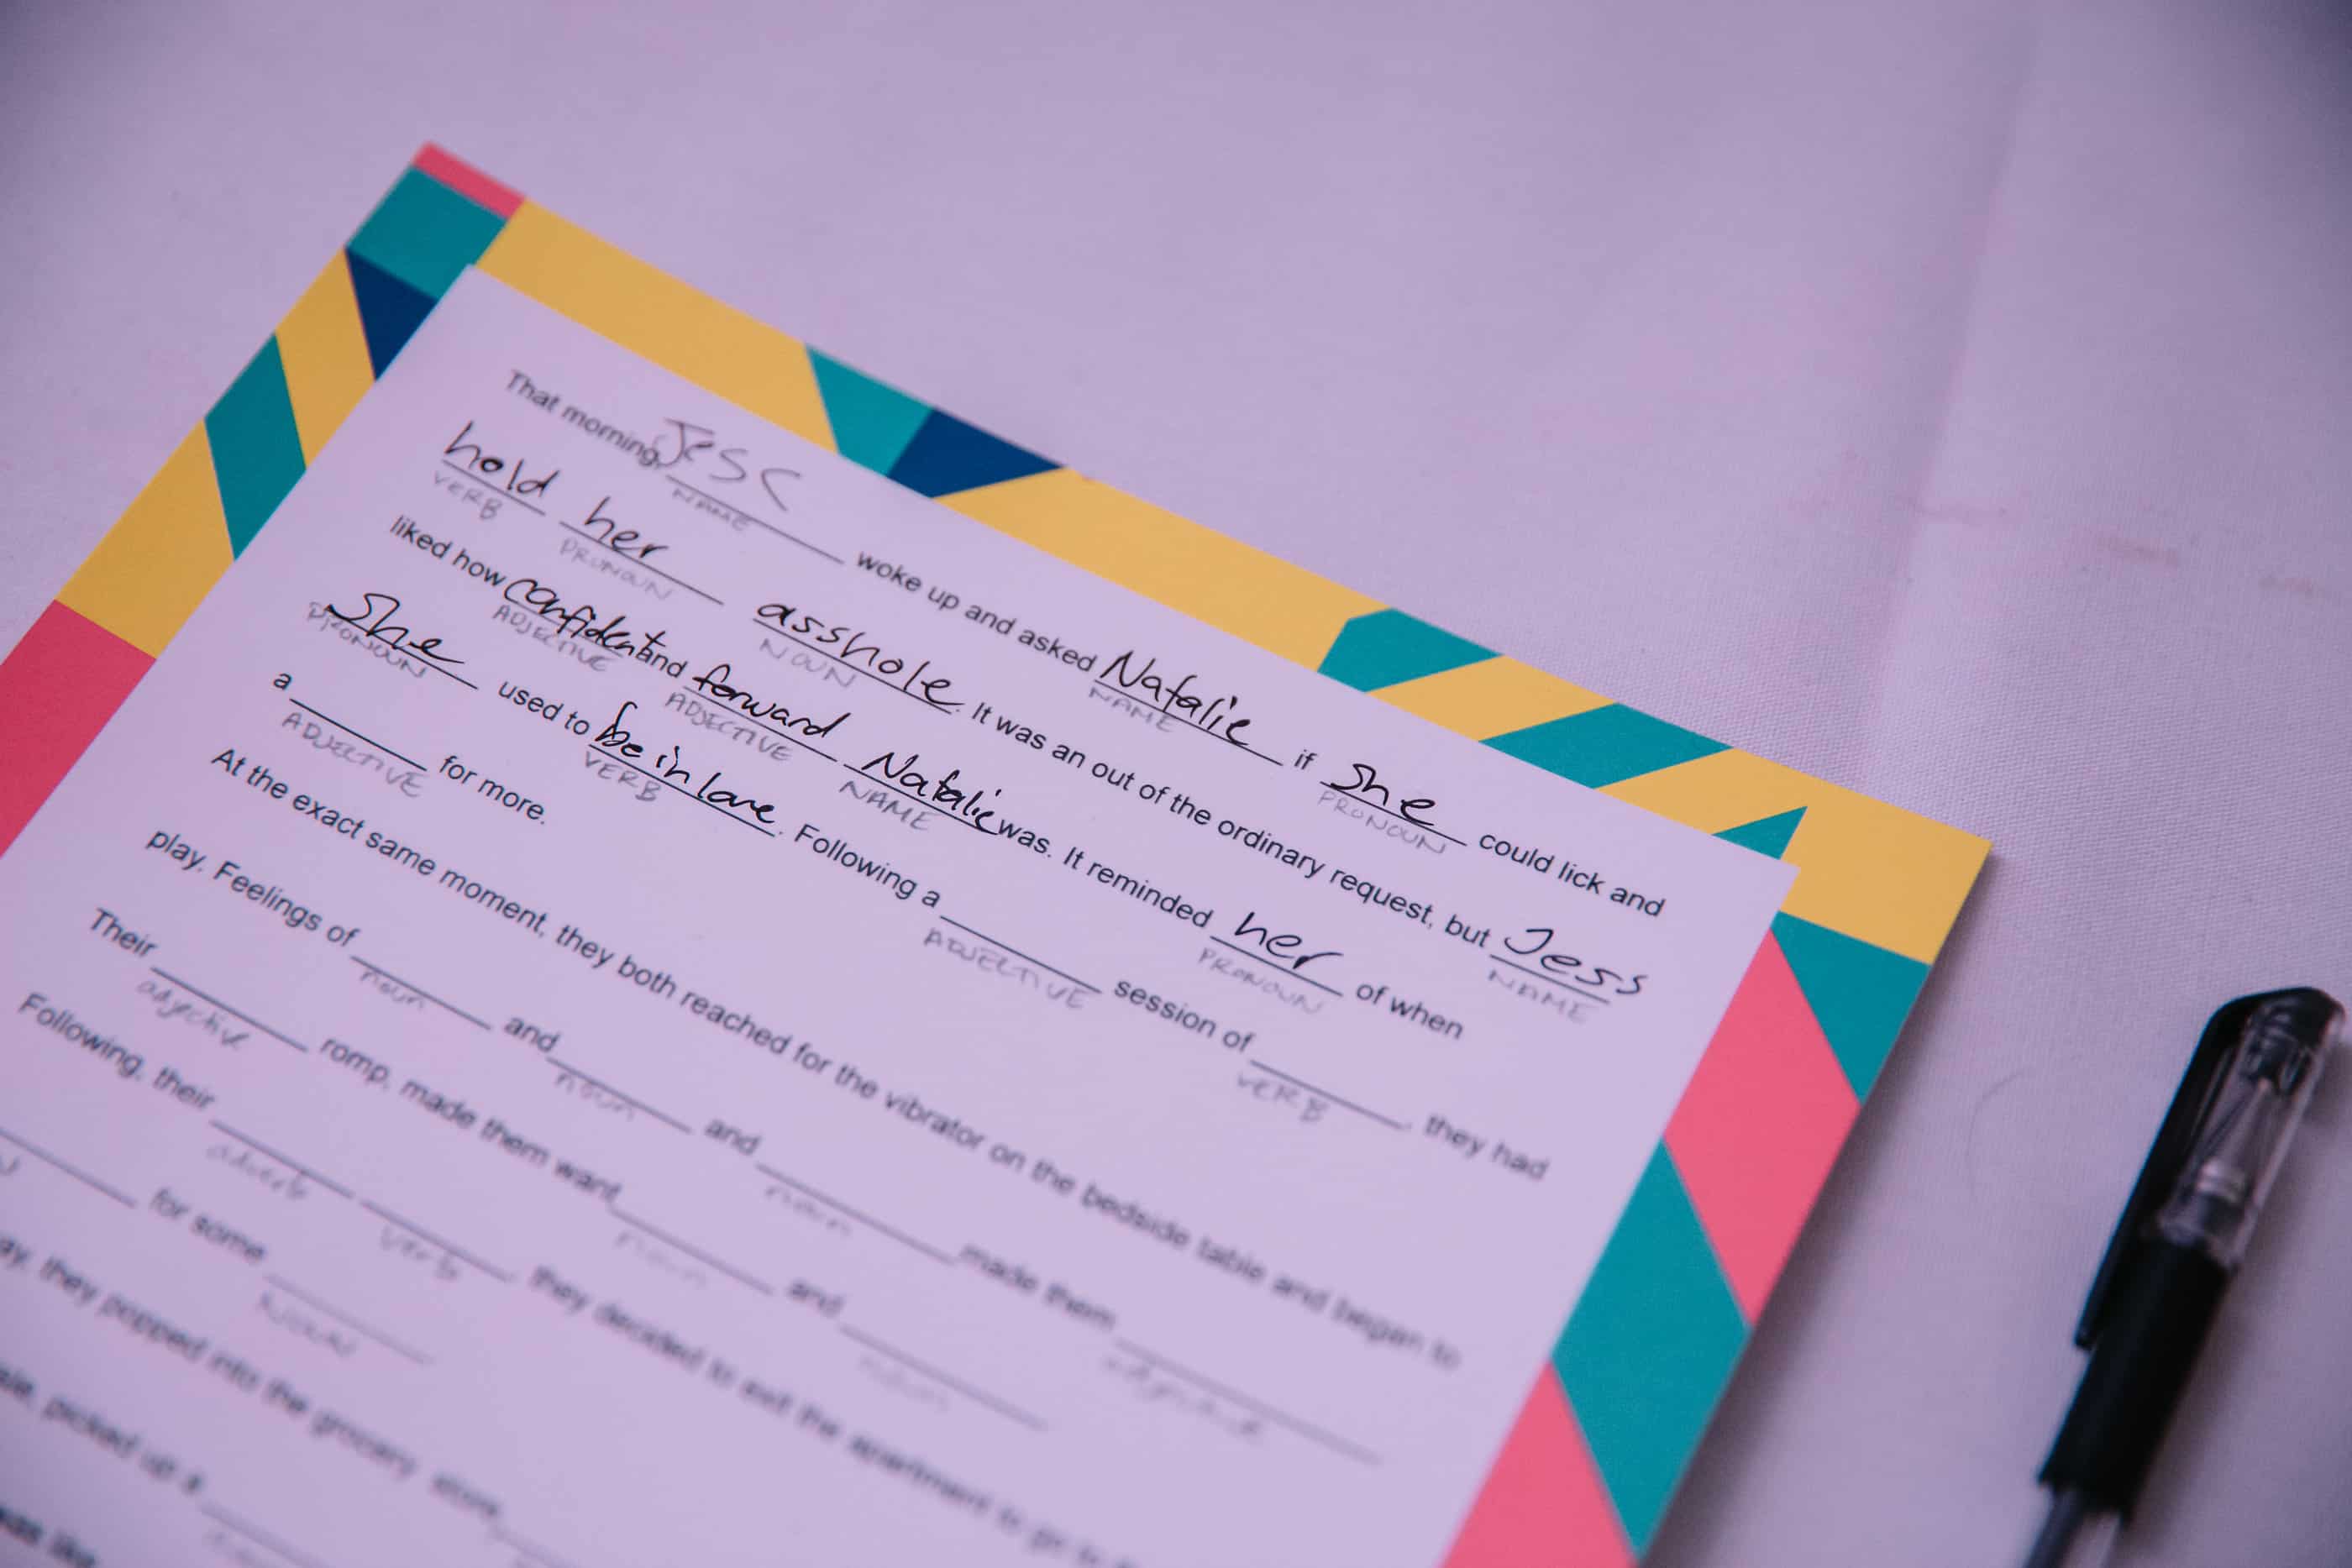 That morning, Jess woke up and asked Natalie if She could lick and
NAME NAME PRONOUN
hold her asshole. It was an out of the ordinary request, but Jess
VERB PRONOUN NOUN NAME
liked how confident and forward Natalie was. It reminded her of when
ADJECTIVE ADJECTIVE NAME PRONOUN
She used to be in love. Following a session of , they had
PRONOUN VERB ADJECTIVE VERB
a for more.
ADJECTIVE
At the exact same moment, they both reached for the vibrator on the bedside table and began to
play. Feelings of and and made them
noun noun noun adjective
Their romp, made them want and
adjective noun noun
Following, their they decided to exit the apartment to go to
adverb verb
for some
NOUN
they popped into the grocery store,
picked up a
was like